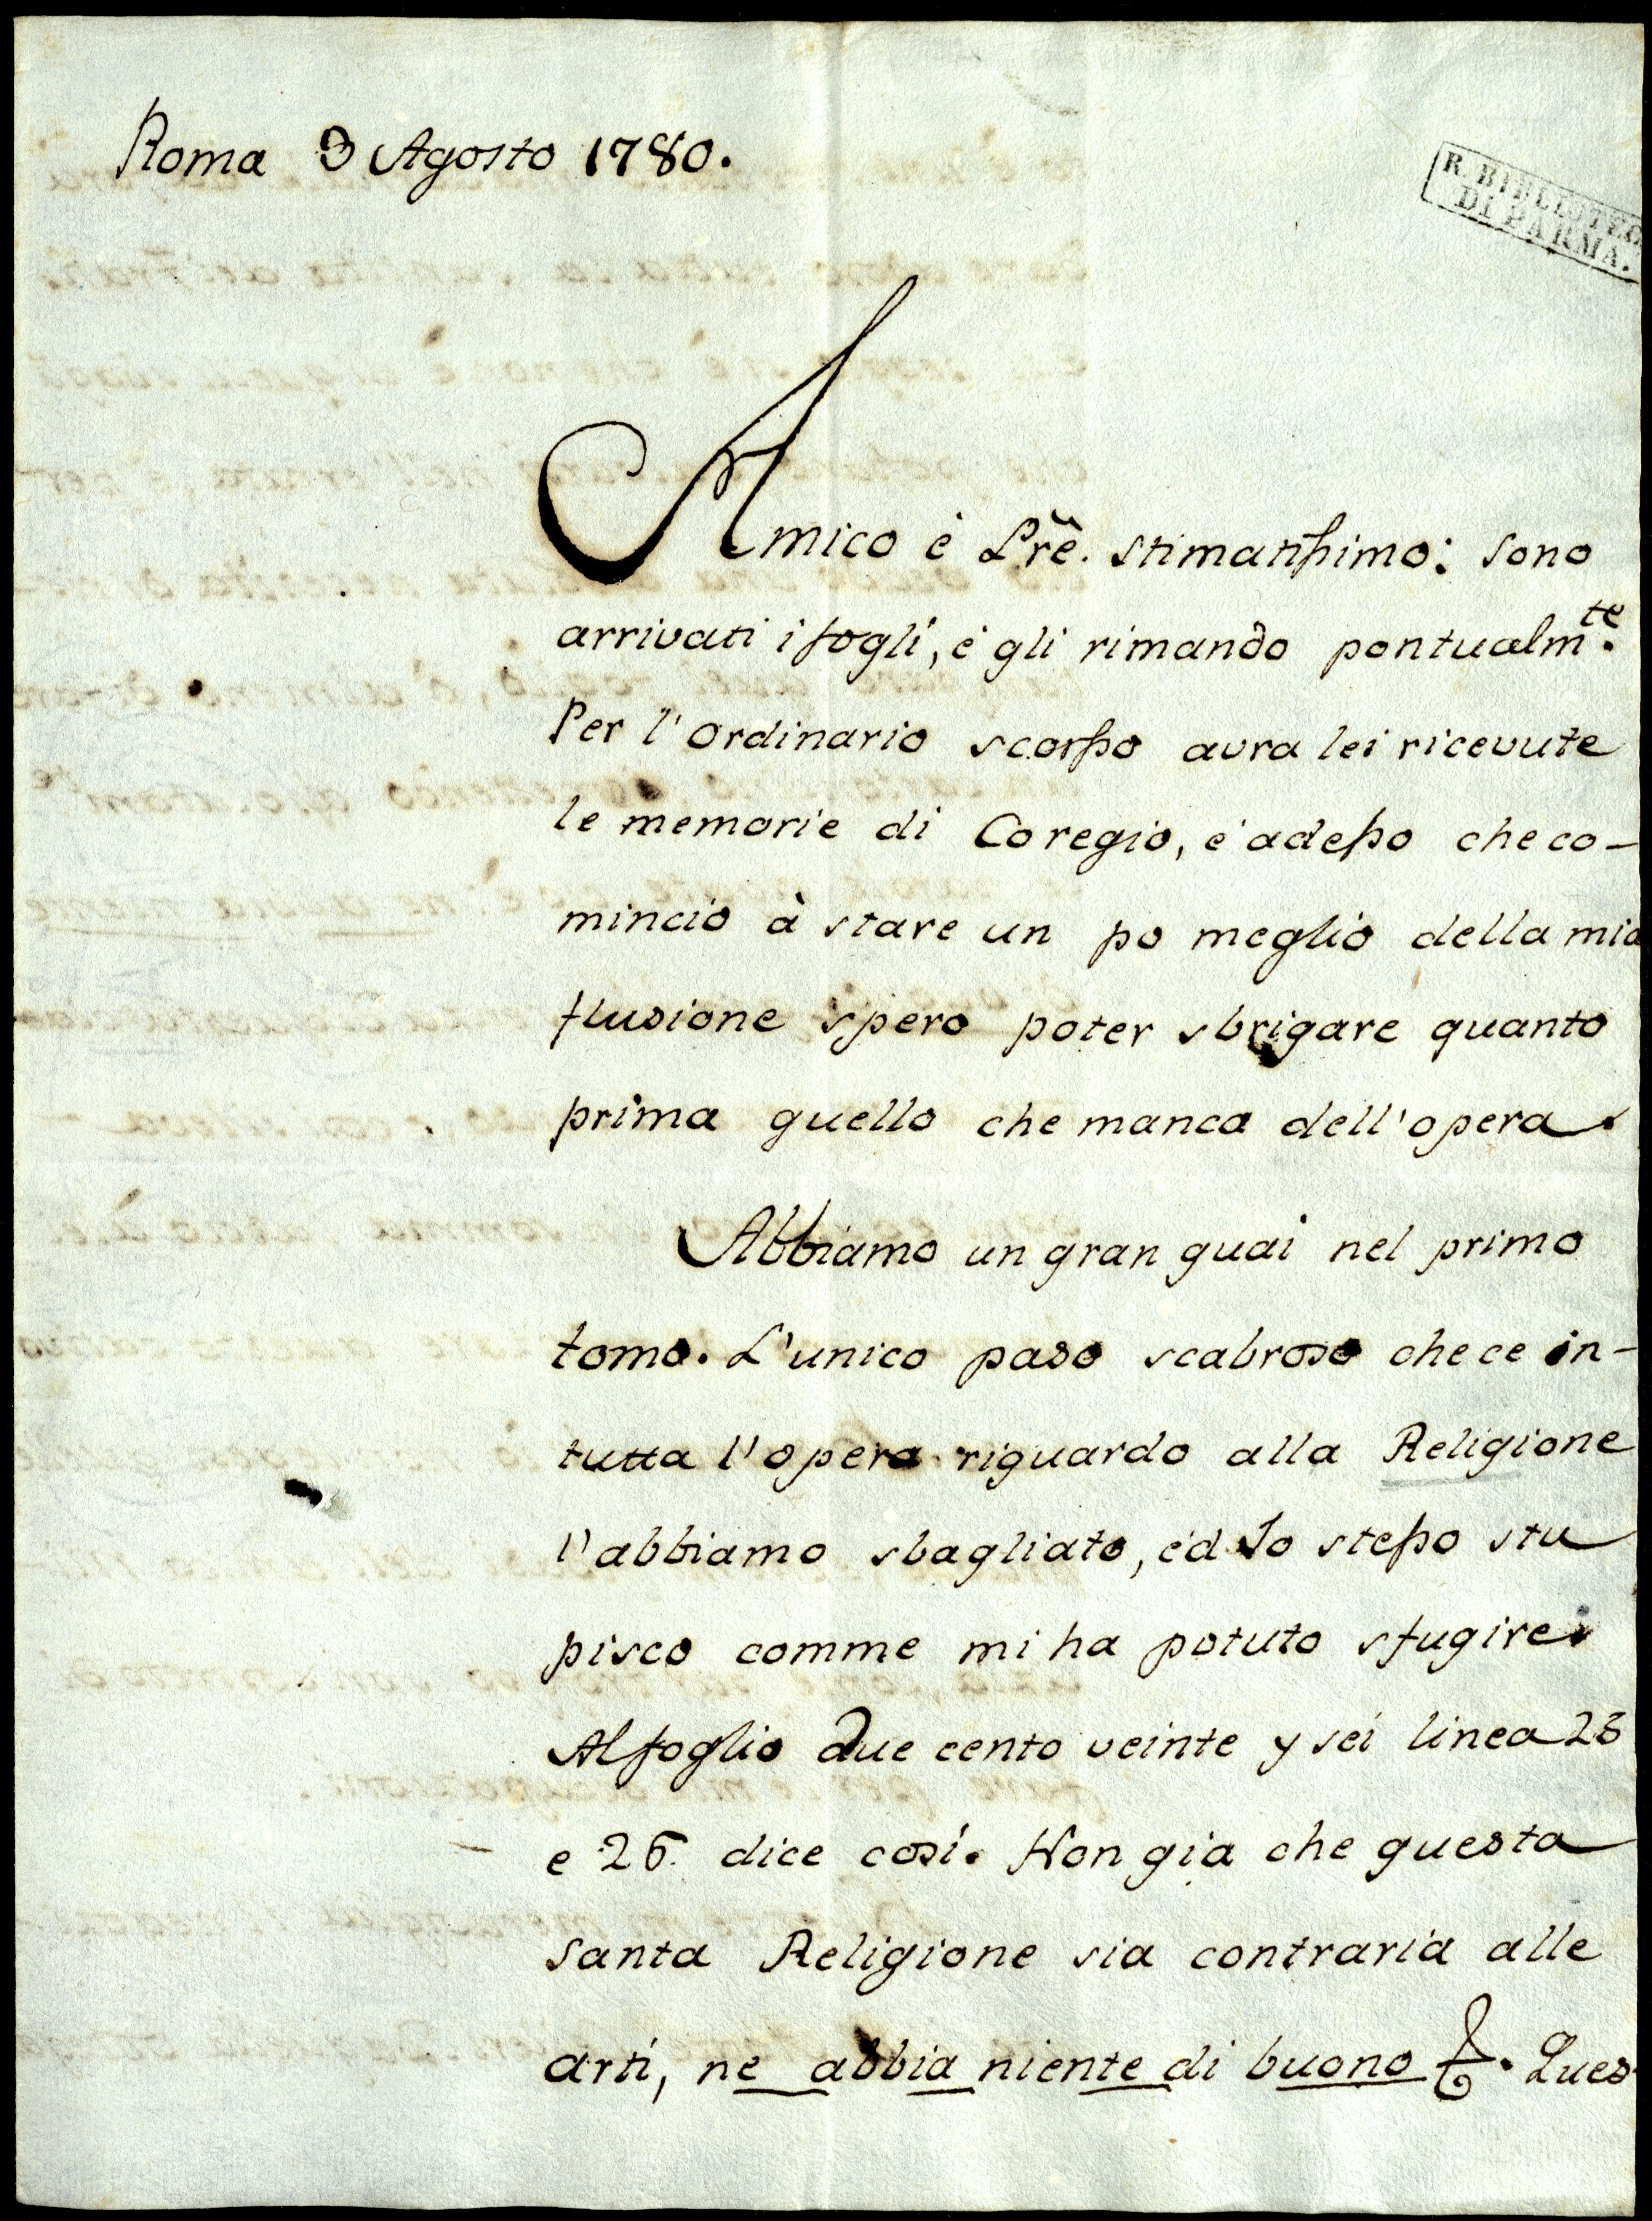 Roma 3 Agosto 1780.
R. BIBLIOTEC
DI PARMA.
Amico è Prẽ. stimatissimo: sono
arrivati i fogli, è gli rimando pontualmte.
Per l'ordinario scorsso avra lei ricevute
le memorie di Coregio, è adesso che co-
mincio à stare un po meglio della mia
flusione spero poter sbrigare quanto
prima quello che manca dell'opera.
Abbiamo un gran guai nel primo
tomo. L'unico paso scabroso che ce in-
tutta l'opera riguardo alla Religione
l'abbiamo sbagliato, èd Io stesso stu
pisco comme mi ha potuto sfugire.
Al foglio due cento veinte y sei linea 25
e 26. dice così. Non gia che questa
santa Religione sia contraria alle
arti, ne abbia niente di buono &. Ques-